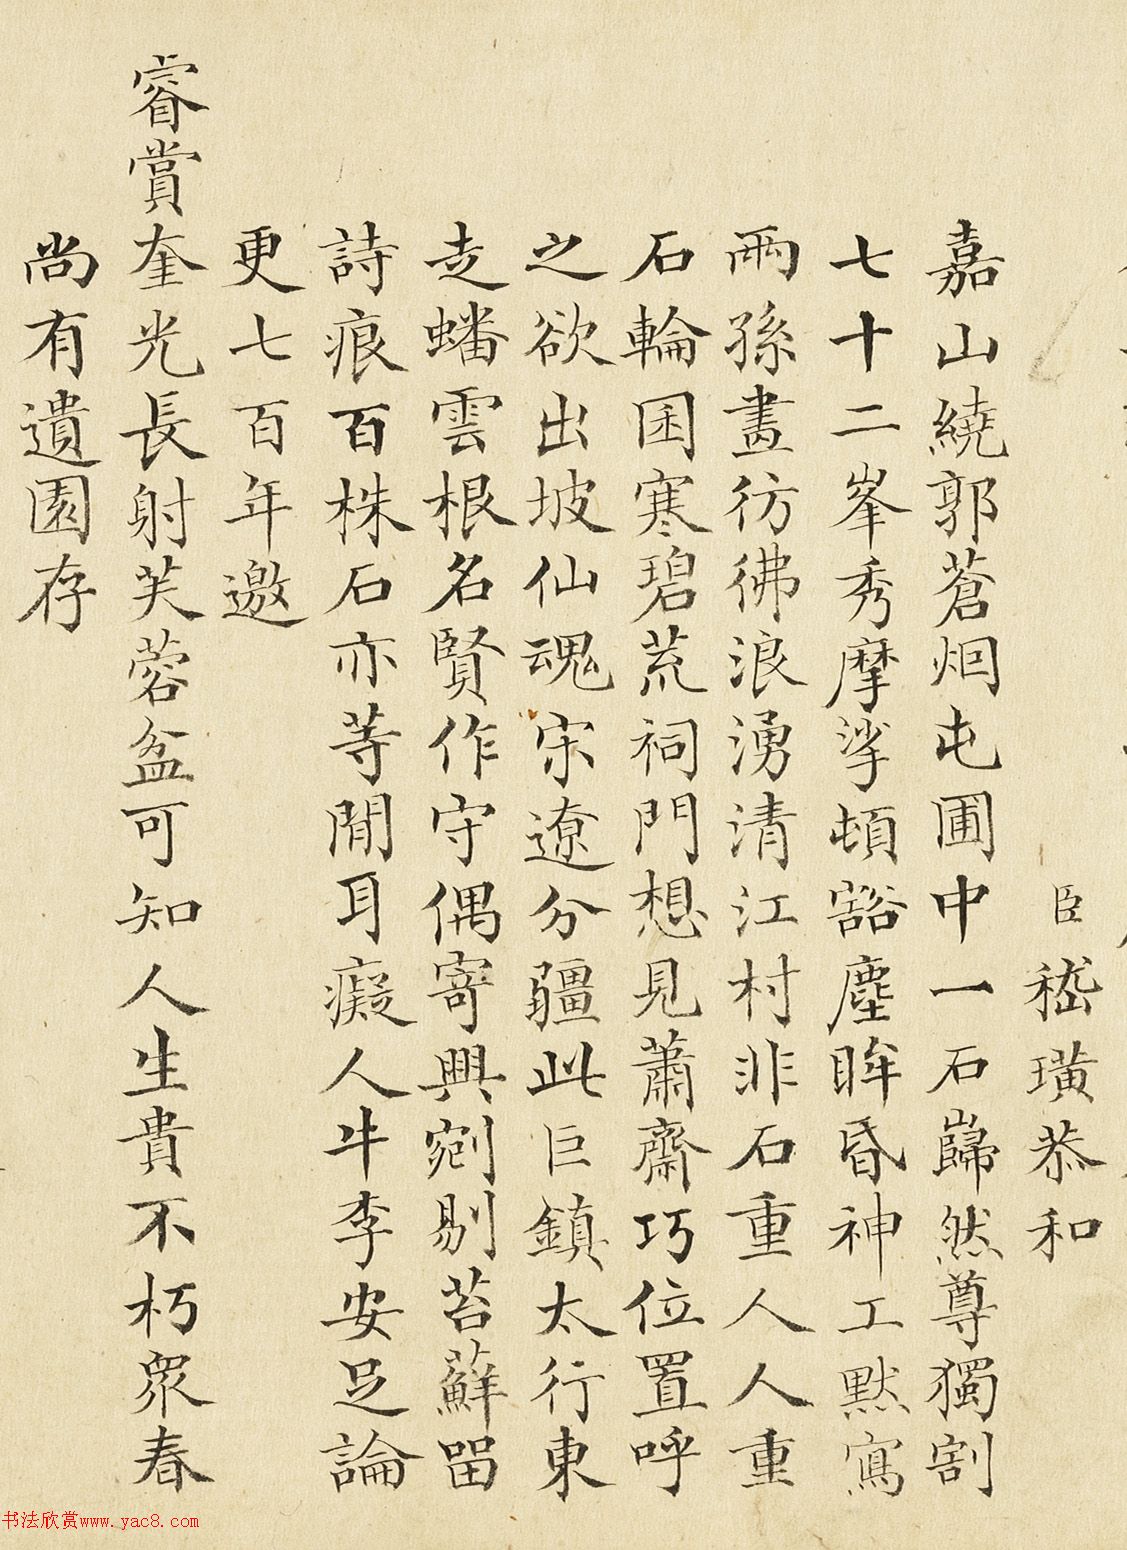 臣嵇璜恭和
嘉山繞郭蒼烟屯圃中一石巋然尊獨割
七十二峯秀摩挲頓豁塵眸昏神工默寫
兩孫畫彷彿浪湧清江村非石重人人重
石輪囷寒碧荒祠門想見蕭齋巧位置呼
之欲出坡仙魂宋遼分疆此巨鎮太行東
走蟠雲根名賢作守偶寄興剜剔苔蘚留
詩痕百株石亦等閒耳癡人牛李安足論
更七百年邀
睿賞奎光長射芙蓉盆可知人生貴不朽眾春
尚有遺園存
书法欣赏www.yac8.com